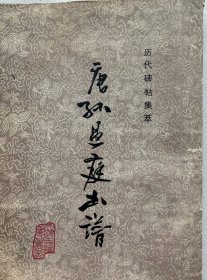 历代碑帖集萃
唐孙过庭书谱